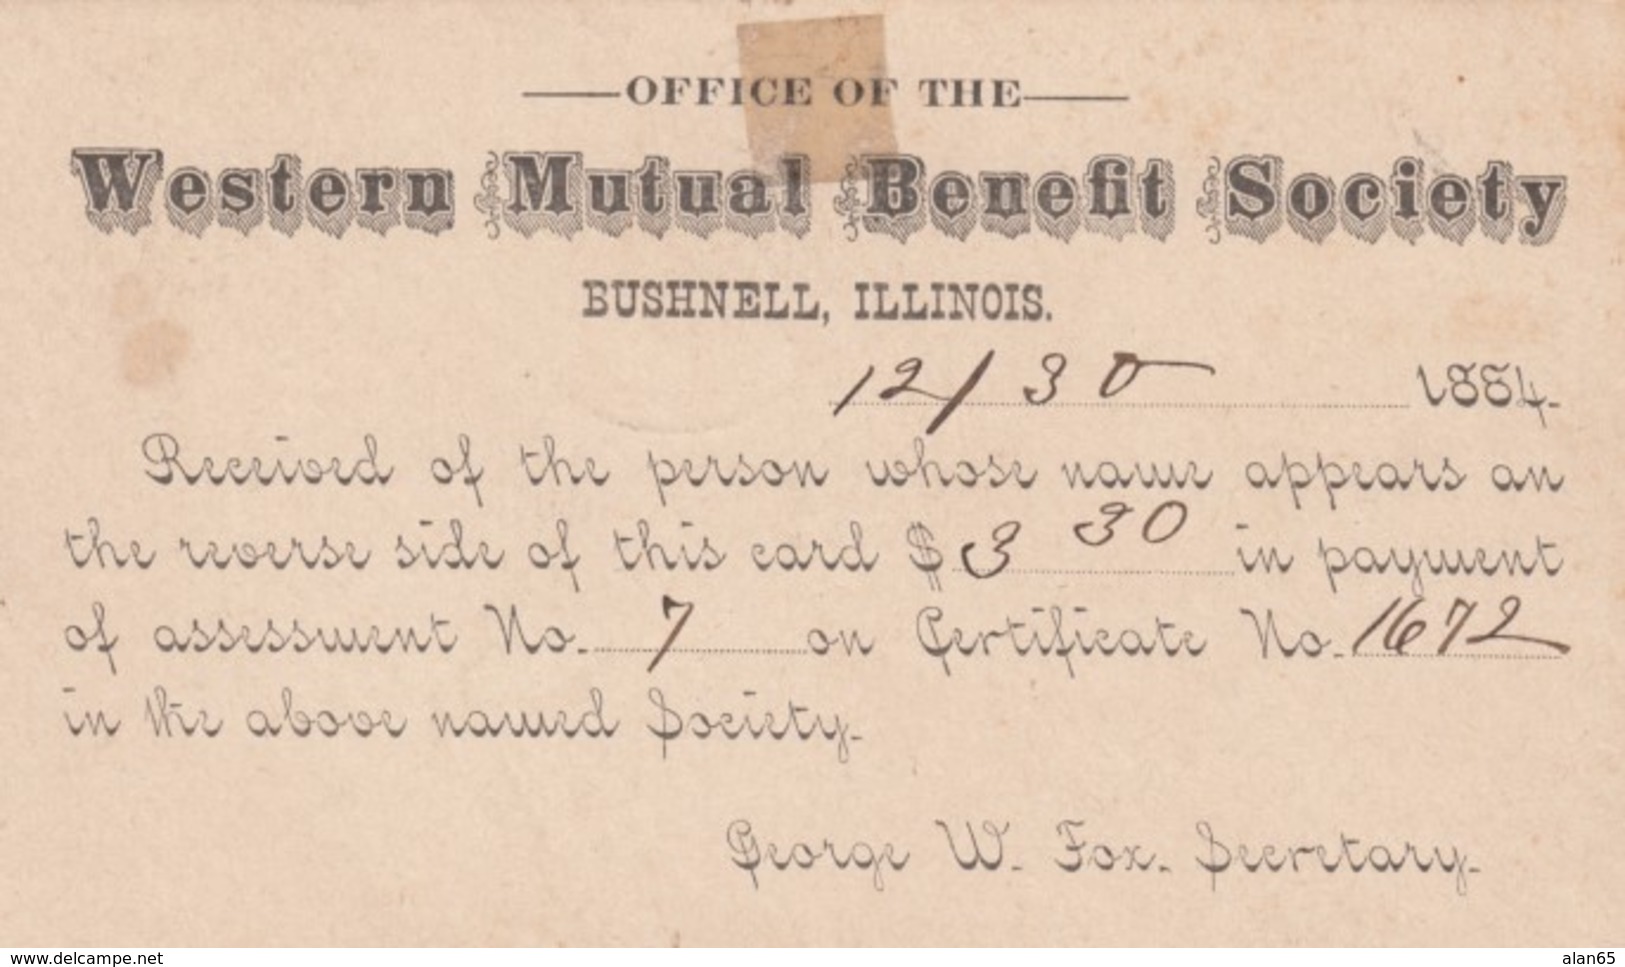 OFFICE OF THE
Western Mutual Benefit Society
BUSHNELL, ILLINOIS.
12/30 1884.
Received of the person whose name appears on
the reverse side of this card $3 30 in payment
of assessment No. 7 on Certificate No. 1672
in the above named Society.
George W. Fox. Secretary.
www.delcampe.net
alan65